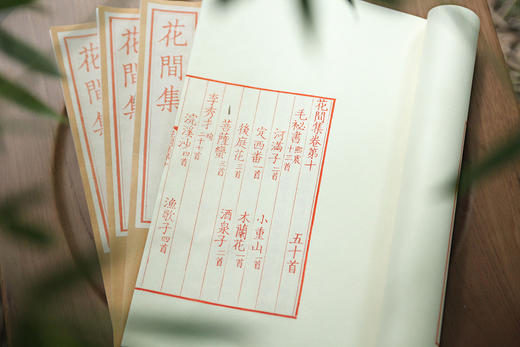 花間集
花間集
花間集
花間集卷第十 五十首
毛秘書熙震十三首
河滿子二首 小重山一首
定西番一首 木蘭花一首
後庭花三首 酒泉子二首
菩薩蠻三首
李秀才珣
浣溪沙四首 漁歌子四首